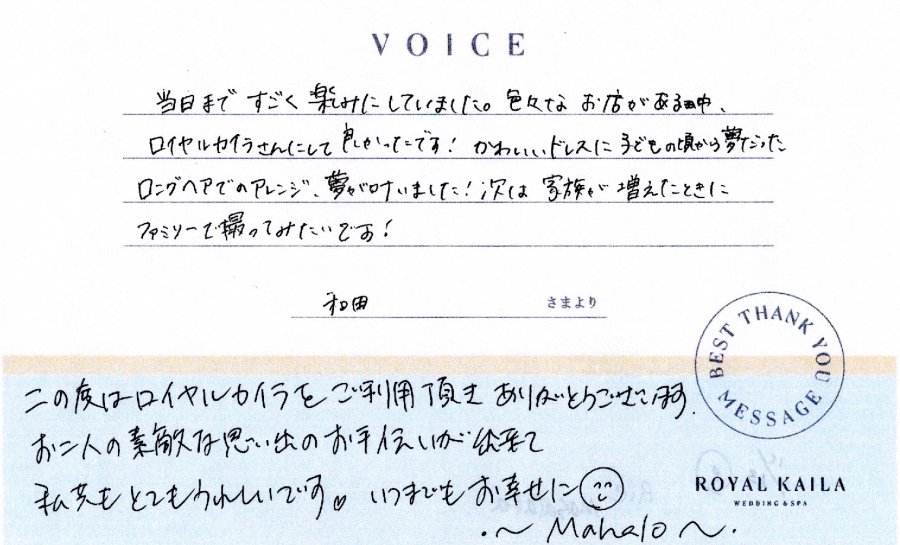 VOICE
当日まで すごく 楽しみにしていました。色々なお店がある中、
ロイヤルカイラさんにして良かったです！かわいいドレスに子どもの頃から夢だった
ロングヘアでのアレンジ、夢が叶いました！次は 家族が 増えたときに
ファミリーで撮ってみたいです！
和田 さまより
BEST THANK YOU MESSAGE
この度はロイヤルカイラをご利用頂きありがとうございます。
お二人の素敵な思い出のお手伝いが出来て
私共もとてもうれしいです。いつまでもお幸せに
ROYAL KAILA
WEDDING & SPA
.～ Mahalo ～.